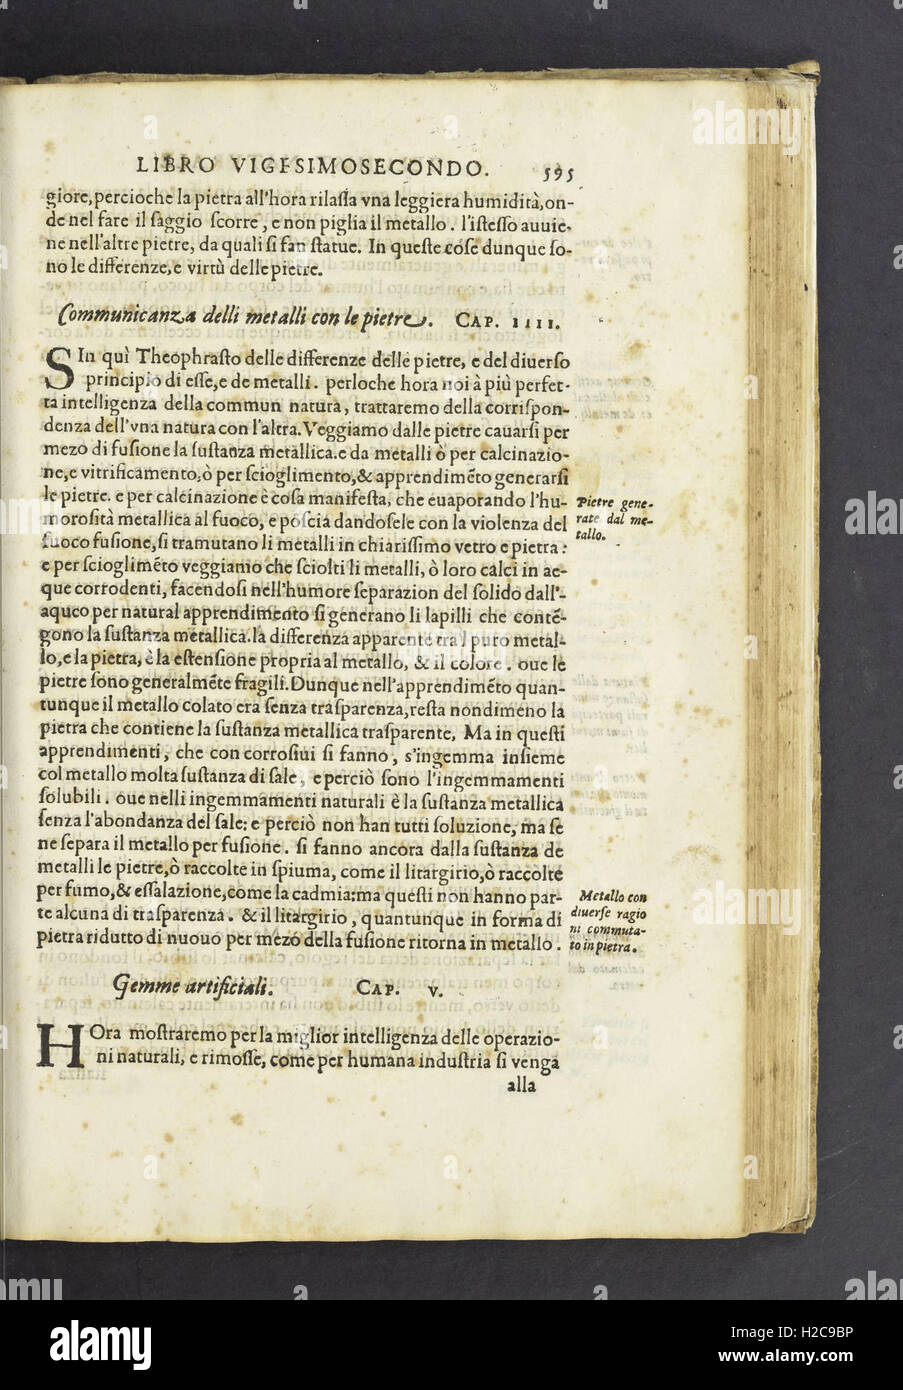 LIBRO VIGESIMOSECONDO. 595
giore, percioche la pietra all'hora rilassa vna leggiera humidità, on-
de nel fare il saggio scorre, e non piglia il metallo. l'istesso auuie-
ne nell'altre pietre, da quali si fan statue. In queste cose dunque so-
no le differenze, e virtù delle pietre.
Communicanza delli metalli con le pietre. CAP. IIII.
SIn quì Theophrasto delle differenze delle pietre, e del diuerso
principio di esse, e de metalli. perloche hora noi à più perfet-
ta intelligenza della commun natura, trattaremo della corrispon-
denza dell'vna natura con l'altra. Veggiamo dalle pietre cauarsi per
mezo di fusione la sustanza metallica. e da metalli ò per calcinazio-
ne, e vitrificamento, ò per scioglimento, & apprendimẽto generarsi
le pietre. e per calcinazione è cosa manifesta, che euaporando l'hu-
morosità metallica al fuoco, e poscia dandosele con la violenza del
fuoco fusione, si tramutano li metalli in chiarissimo vetro e pietra:
e per scioglimẽto veggiamo che sciolti li metalli, ò loro calci in ac-
que corrodenti, facendosi nell'humore separazion del solido dall'-
aqueo per natural apprendimento si generano li lapilli che contẽ-
gono la sustanza metallica. la differenza apparente tra l puro metal-
lo, e la pietra, è la estensione propria al metallo, & il colore. oue le
pietre sono generalmẽte fragili. Dunque nell'apprendimẽto quan-
tunque il metallo colato era senza trasparenza, resta nondimeno la
pietra che contiene la sustanza metallica trasparente, Ma in questi
apprendimenti, che con corrosiui si fanno, s'ingemma insieme
col metallo molta sustanza di sale, e perciò sono l'ingemmamenti
solubili. oue nelli ingemmamenti naturali è la sustanza metallica
senza l'abondanza del sale: e perciò non han tutti soluzione, ma se
ne separa il metallo per fusione. si fanno ancora dalla sustanza de
metalli le pietre, ò raccolte in spiuma, come il litargirio, ò raccolte
per fumo, & essalazione, come la cadmia: ma questi non hanno par-
te alcuna di trasparenza. & il litargirio, quantunque in forma di
pietra ridutto di nuouo per mezo della fusione ritorna in metallo.
Pietre gene-
rate dal me-
tallo.
Metallo con
diuerse ragio
ni commuta-
to in pietra.
Gemme artificiali. CAP. V.
HOra mostraremo per la miglior intelligenza delle operazio-
ni naturali, e rimosse, come per humana industria si venga
alla
a alamy stock photo
H2C9BP
www.alamy.com